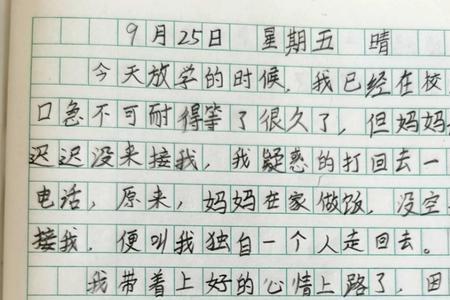 9月25日 星期五 晴
今天放学的时候,我已经在校
口急不可耐得等了很久了,但妈妈
迟迟没来接我,我疑惑的打回去一
电话,原来,妈妈在家做饭,没空
接我,便叫我独自一个人走回去。
我带着上好的心情上路了,田